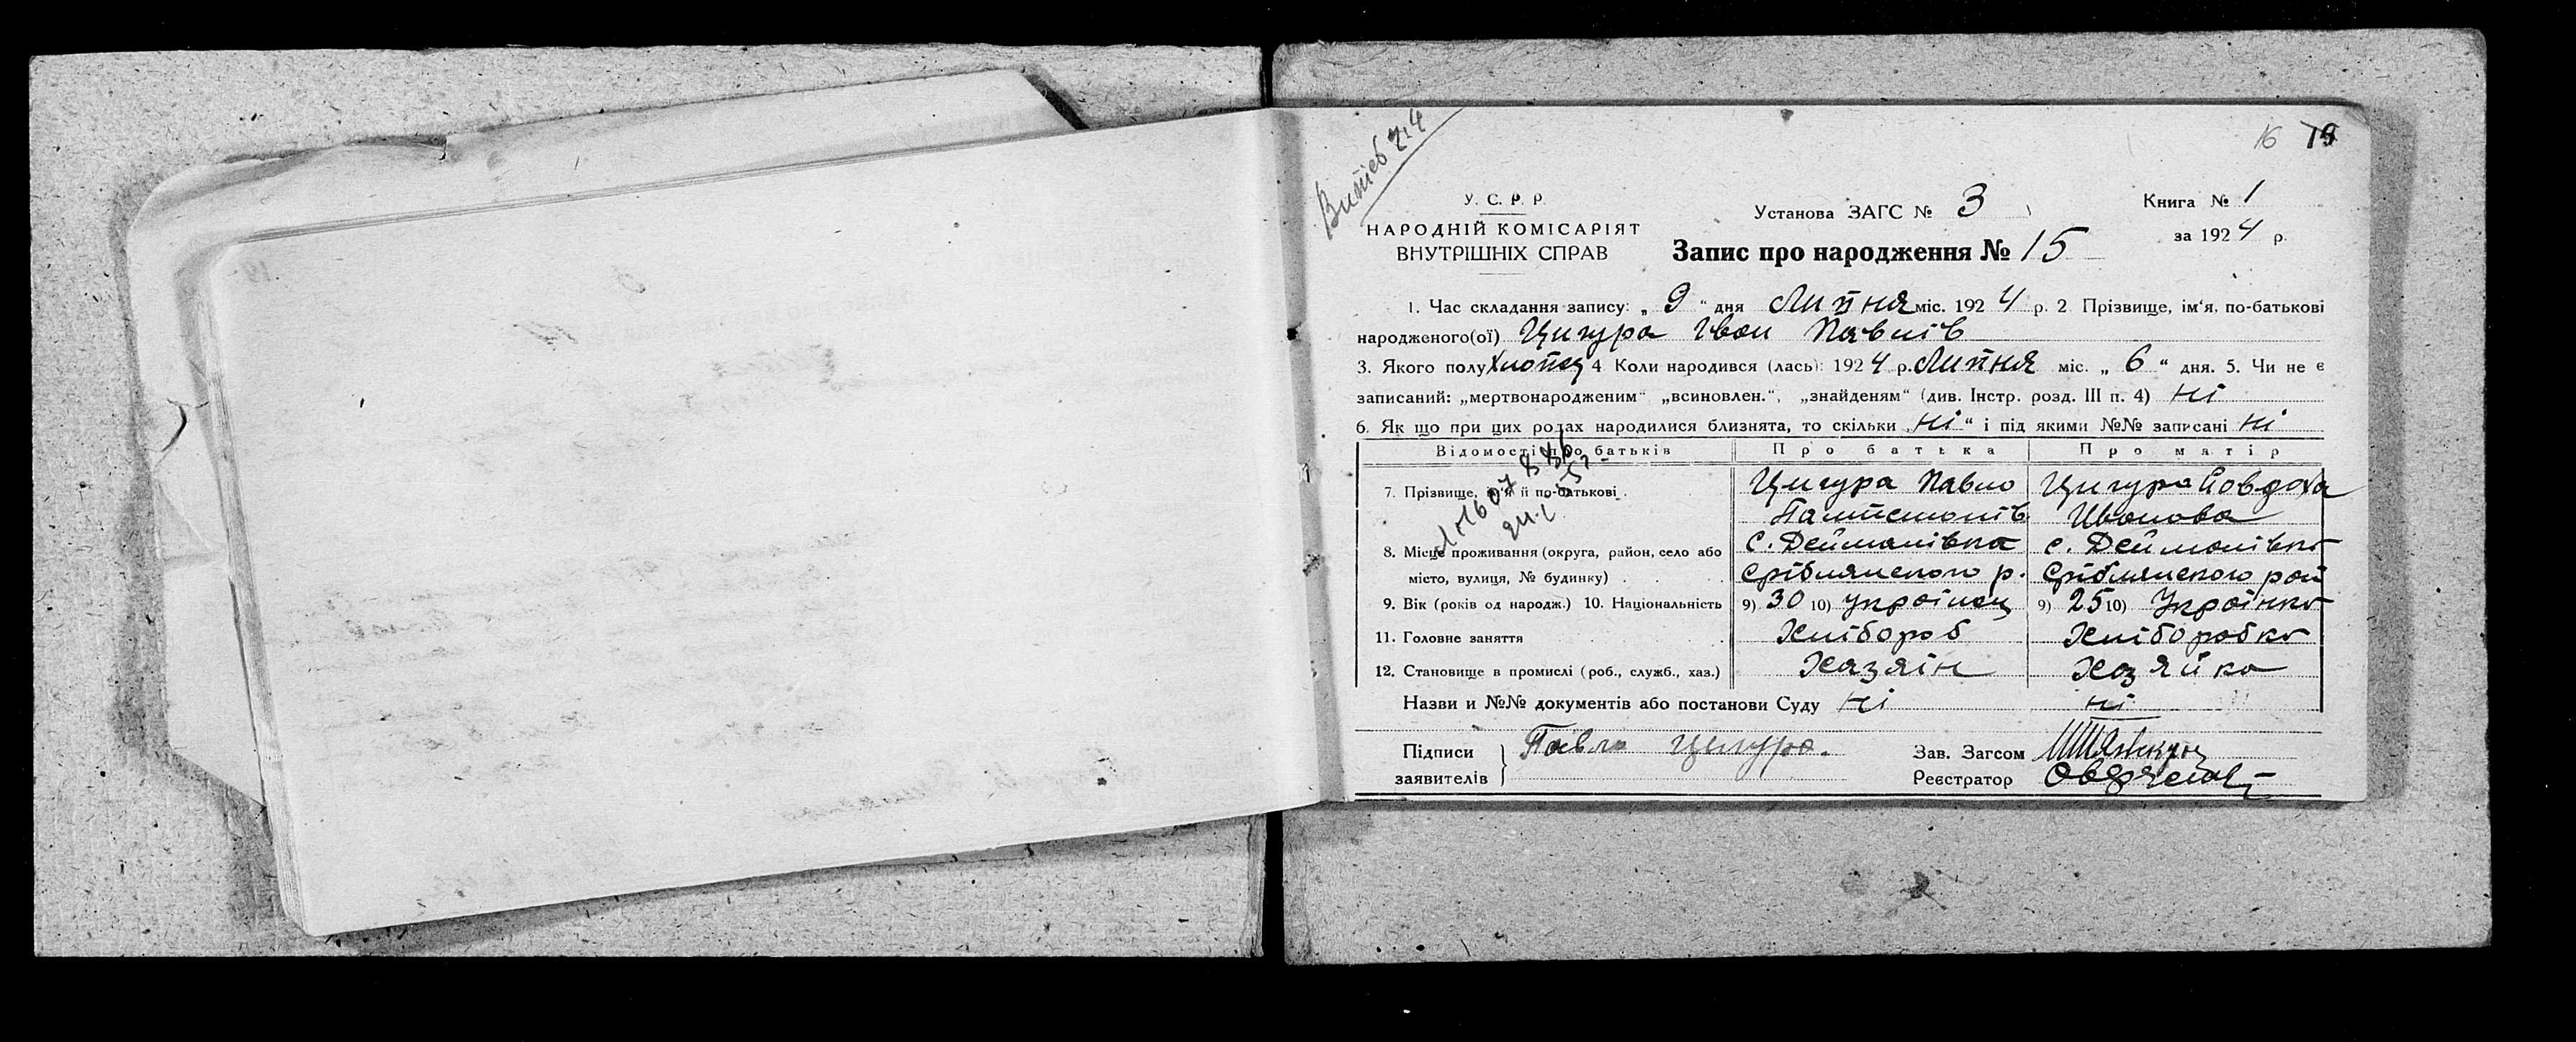 16 19
У. С. Р. Р.
НАРОДНІЙ КОМІСАРІЯТ
ВНУТРІШНІХ СПРАВ
Установа ЗАГС № 3
Книга № 1
за 1924 р.
Запис про народження № 15
1. Час складання запису: „ 9 “ дня Липня міс. 1924 р. 2 Прізвище, ім‘я, по-батькові
народженого(ої) Цигура Іван Павлів
3. Якого полу Хлопец 4 Коли народився (лась): 1924 р. Липня міс. „ 6 “ дня. 5. Чи не є
записаний: „мертвонародженим“ „всиновлен.“, „знайденям“ (див. Інстр. розд. III п. 4) Ні
6. Як що при цих родах народилися близнята, то скільки „ Ні “ і під якими №№ записані Ні
Відомості про батьків Про батька Про матір
7. Прізвище, ім‘я й по-батькові. Цигура Павло Цигура Йовдоха
Іванова
8. Місце проживання (округа, район, село або с. Дейманівка с. Дейманівка
місто, вулиця, № будинку) Сріблянского р. Сріблянского рай
9. Вік (років од народж.) 10. Національність 9) 30 10) українец 9) 25 10) Українка
11. Головне заняття Хлібороб Хліборобка
12. Становище в промислі (роб., служб., хаз.) Хазяін Хазяйка
Назви и №№ документів або постанови Суду Ні Ні
Підписи
заявителів
Павло Цигура.
Зав. Загсом
Реєстратор